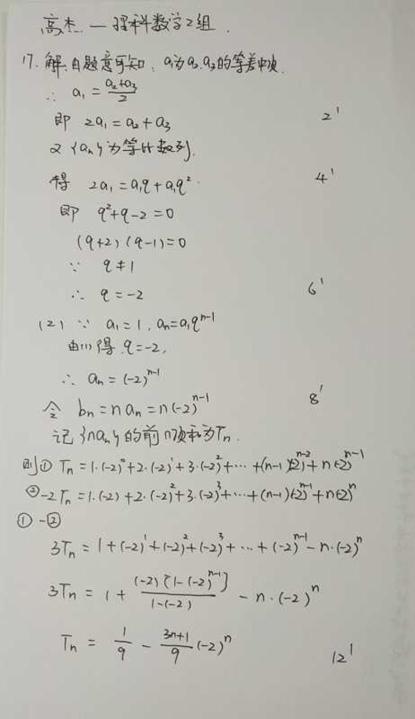 高杰 — 理科数学2组.
17. 解:由题意可知, a₁为a₂.a₃的等差中项.
∴ a₁ = (a₂+a₃)/2
即 2a₁ = a₂ + a₃ 2'
又 {aₙ}为等比数列,
得 2a₁ = a₁q + a₁q². 4'
即 q²+q-2=0
(q+2)(q-1)=0
∵ q≠1
∴ q=-2 6'
(2) ∵ a₁=1, aₙ=a₁qⁿ⁻¹
由(1)得 q=-2,
∴ aₙ = (-2)ⁿ⁻¹ 8'
令 bₙ = naₙ = n(-2)ⁿ⁻¹
记{naₙ}的前n项和为Tₙ.
则① Tₙ = 1·(-2)⁰+2·(-2)¹+3·(-2)²+…+(n-1)(-2)ⁿ⁻²+n(-2)ⁿ⁻¹
②-2Tₙ = 1·(-2)+2·(-2)²+3·(-2)³+…+(n-1)(-2)ⁿ⁻¹+n(-2)ⁿ
①-②
3Tₙ = 1+(-2)¹+(-2)²+(-2)³+…+(-2)ⁿ⁻¹-n·(-2)ⁿ
3Tₙ = 1 + (-2)[1-(-2)ⁿ⁻¹]/1-(-2) - n·(-2)ⁿ
Tₙ = 1/9 - (3n+1)/9 (-2)ⁿ 12'